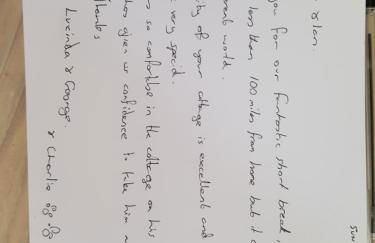 & Ian.
you for our fantastic short break,
less than 100 miles from home but it
world.
of your cottage is excellent and
very special.
so comfortable in the cottage on his
gives us confidence to take him
Thanks
Lucinda & George.
& Charlie
SUN